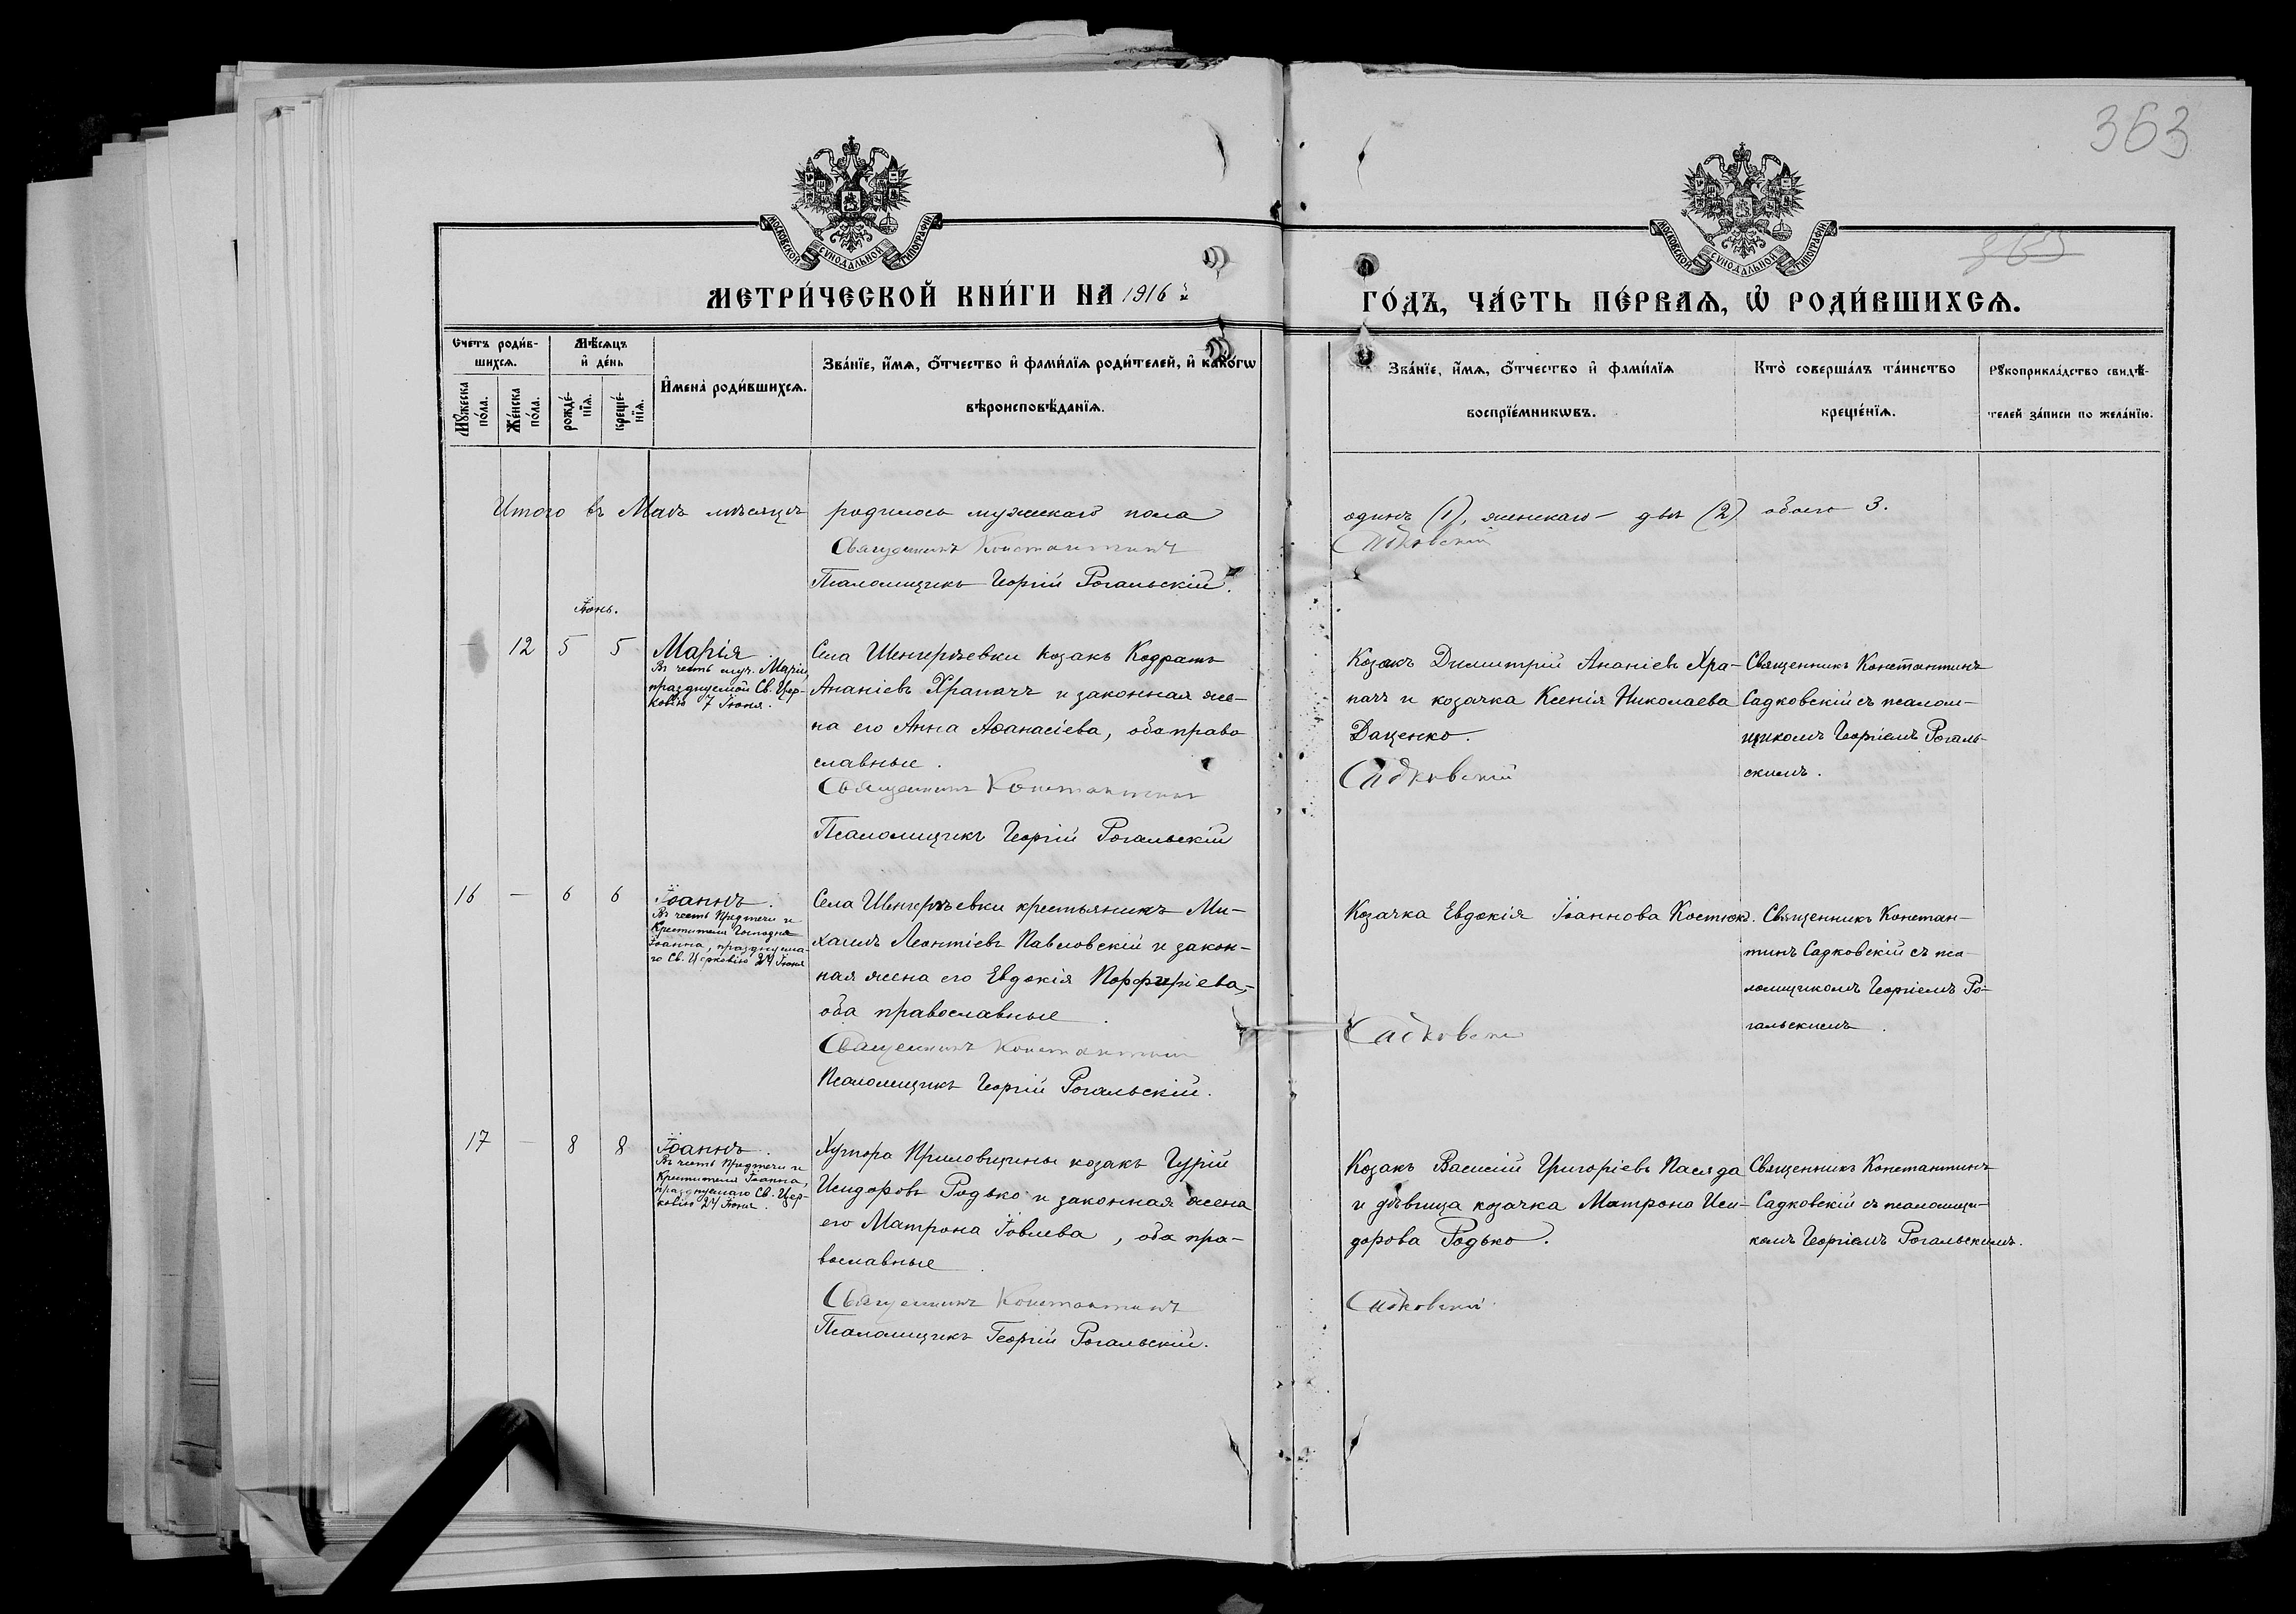 363
363
МОСКОВСКОЙ СѴНОДАЛЬНОЙ ТИПОГРАФІИ
МОСКОВСКОЙ СѴНОДАЛЬНОЙ ТИПОГРАФІИ
МЕТРИ́ЧЕСКОЙ КНИ́ГИ НА 1916 й
ГО́ДЪ, ЧА́СТЬ ПЕ́РВАѦ, Ѽ РОДИ́ВШИХСѦ.
Счетъ роди́в-
шихсѧ.
Мꙋжеска по́ла.
Же́нска по́ла.
Мѣ́сѧцъ
и҆ де́нь
рожде́-нїѧ.
креще́-нїѧ.
И҆мена̀ роди́вшихсѧ.
Зва́нїе, и҆́мѧ, ѻ҆́тчество и҆ фами́лїѧ роди́телей, и҆ како́гѡ
вѣроисповѣ́данїѧ.
Зва́нїе, и҆́мѧ, ѻ҆́тчество и҆ фами́лїѧ
воспрїе́мникѡвъ.
Кто̀ соверша́лъ та́инство
креще́нїѧ.
Рꙋкоприкла́дство свидѣ́-
телей за́писи по жела́нїю.
Итого въ Маѣ мѣсяцѣ родилось мужескаго пола
одинъ (1), женскаго – двѣ (2) обоего 3.
Священникъ Константинъ
Садковскій
Псаломщикъ Георгій Рогальскій.
Іюнь.
— 12 5 5
Марія.
Въ честь муч. Маріи,
празднуемой Св. Цер-
ковію 7 Іюня.
Села Шенгерѣевки козакъ Кодратъ
Ананіевъ Храпачъ и законная же-
на его Анна Аѳанасіева, оба право
славные.
Священникъ Константинъ
Псаломщикъ Георгій Рогальскій
Козакъ Димитрій Ананіевъ Хра-
пачъ и козачка Ксенія Николаева
Даценко.
Садковскій
Священникъ Константинъ
Садковскій съ псалом-
щикомъ Георгіемъ Рогаль-
скимъ.
16 — 6 6
Іоаннъ.
Въ честь Предтечи и
Крестителя Господня
Іоанна, празднуема-
го Св. Церковію 24 Іюня
Села Шенгерѣевки крестьянинъ Ми-
хаилъ Леонтіевъ Павловскій и закон-
ная жена его Евдокія Порфиріева,-
оба православные.
Священникъ Константинъ
Псаломщикъ Георгій Рогальскій.
Козачка Евдокія Іоаннова Костюкъ.
Садковскій
Священникъ Констан-
тинъ Садковскій съ пса-
ломщикомъ Георгіемъ Ро-
гальскимъ.
17 — 8 8
Іоаннъ.
Въ честь Предтечи и
Крестителя Іоанна,
празднуемаго Св. Цер-
ковію 24 Іюня.
Хутора Приловщины козакъ Гурій
Исидоровъ Родько и законная жена
его Матрона Іовлева, оба пра-
вославные.
Священникъ Константинъ
Псаломщикъ Георгій Рогальскій.
Козакъ Василій Григоріевъ Пасяда
и дѣвица козачка Матрона Иси-
дорова Родько.
Садковскій
Священникъ Константинъ
Садковскій съ псаломщи-
комъ Георгіемъ Рогальскимъ.